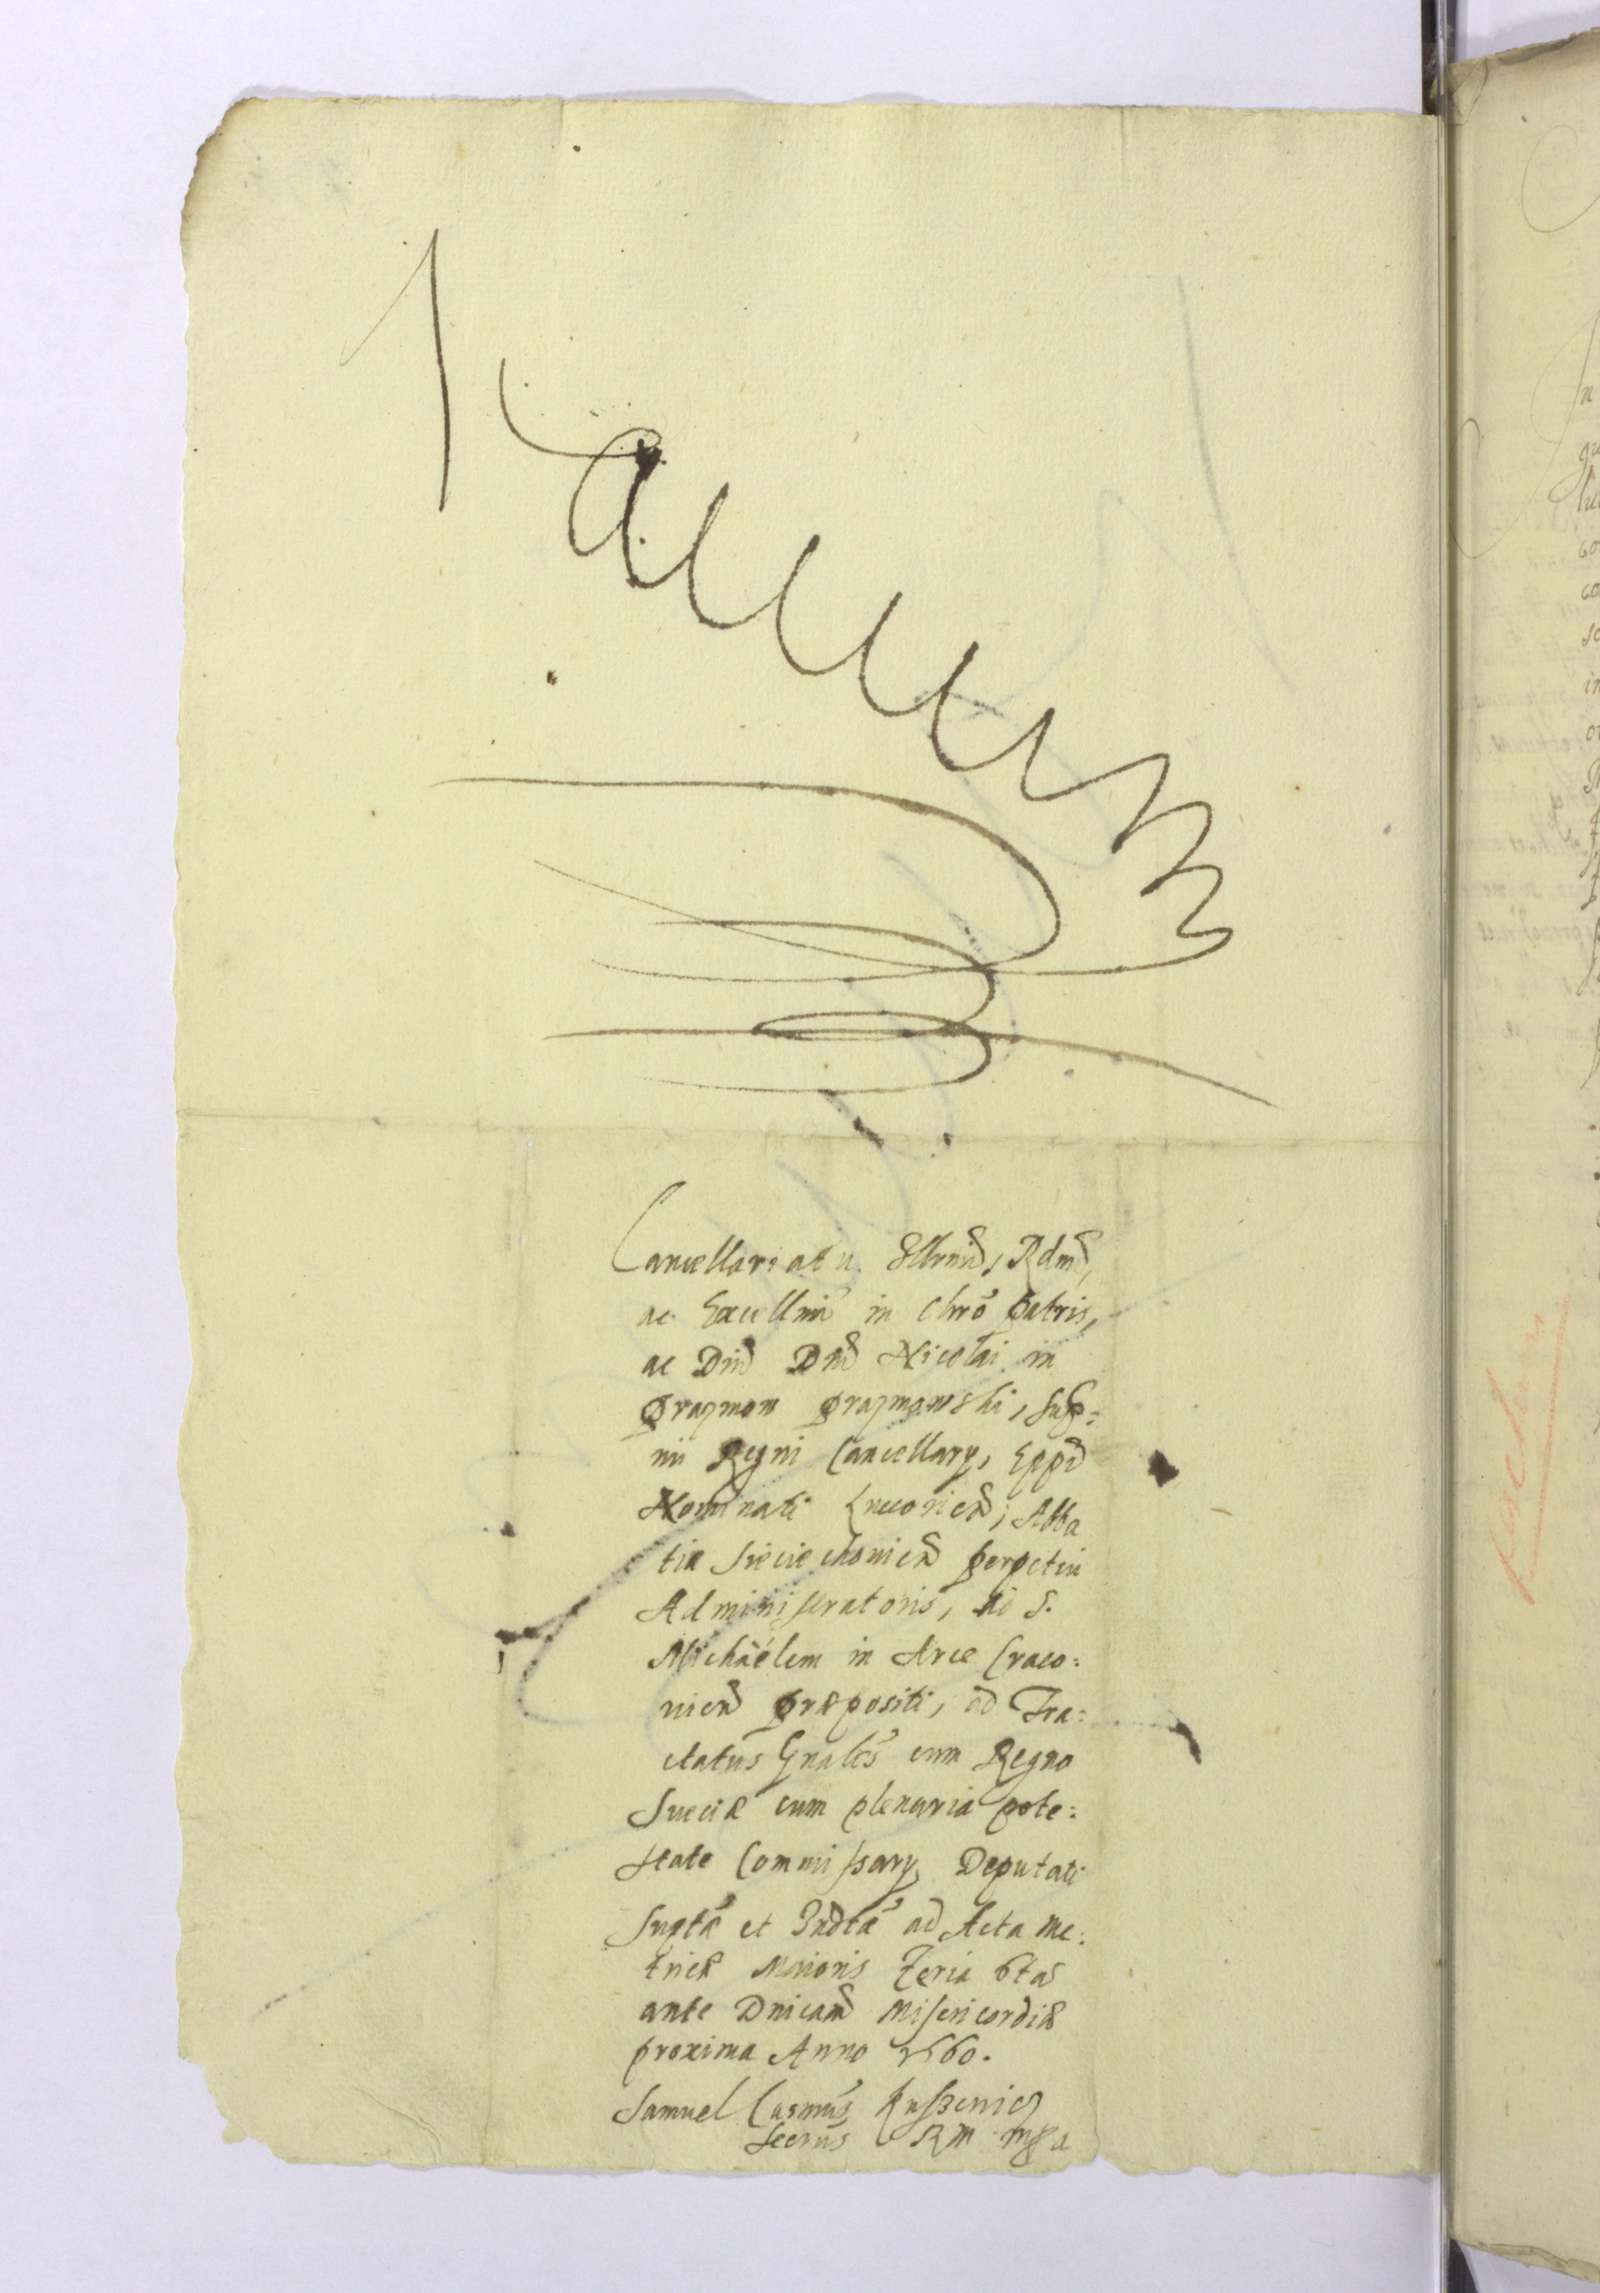 Cancellariatu Illrmi, Rdmi,
ac Excellmi in Chro Patris,
ac Dni Dni Nicolai in
Prazmow Prazmowski, Supr:
mi Regni Cancellary, Eppi
Nominati Luceorien; Abba
tiæ Sieciechovien perpetui
Administratoris, ad S.
Michaëlem in Arce Craco:
vien Præpositi, ad Tra:
ctatus Gnales cum Regno
Sueciæ cum plenaria pote:
state Commissary Deputati
Supta et Indta ad Acta Me:
tricæ Maioris feria 6ta
ante Dnicam Misericordiæ
proxima Anno 1660.
Samuel Casmus
Secrius R M mpa